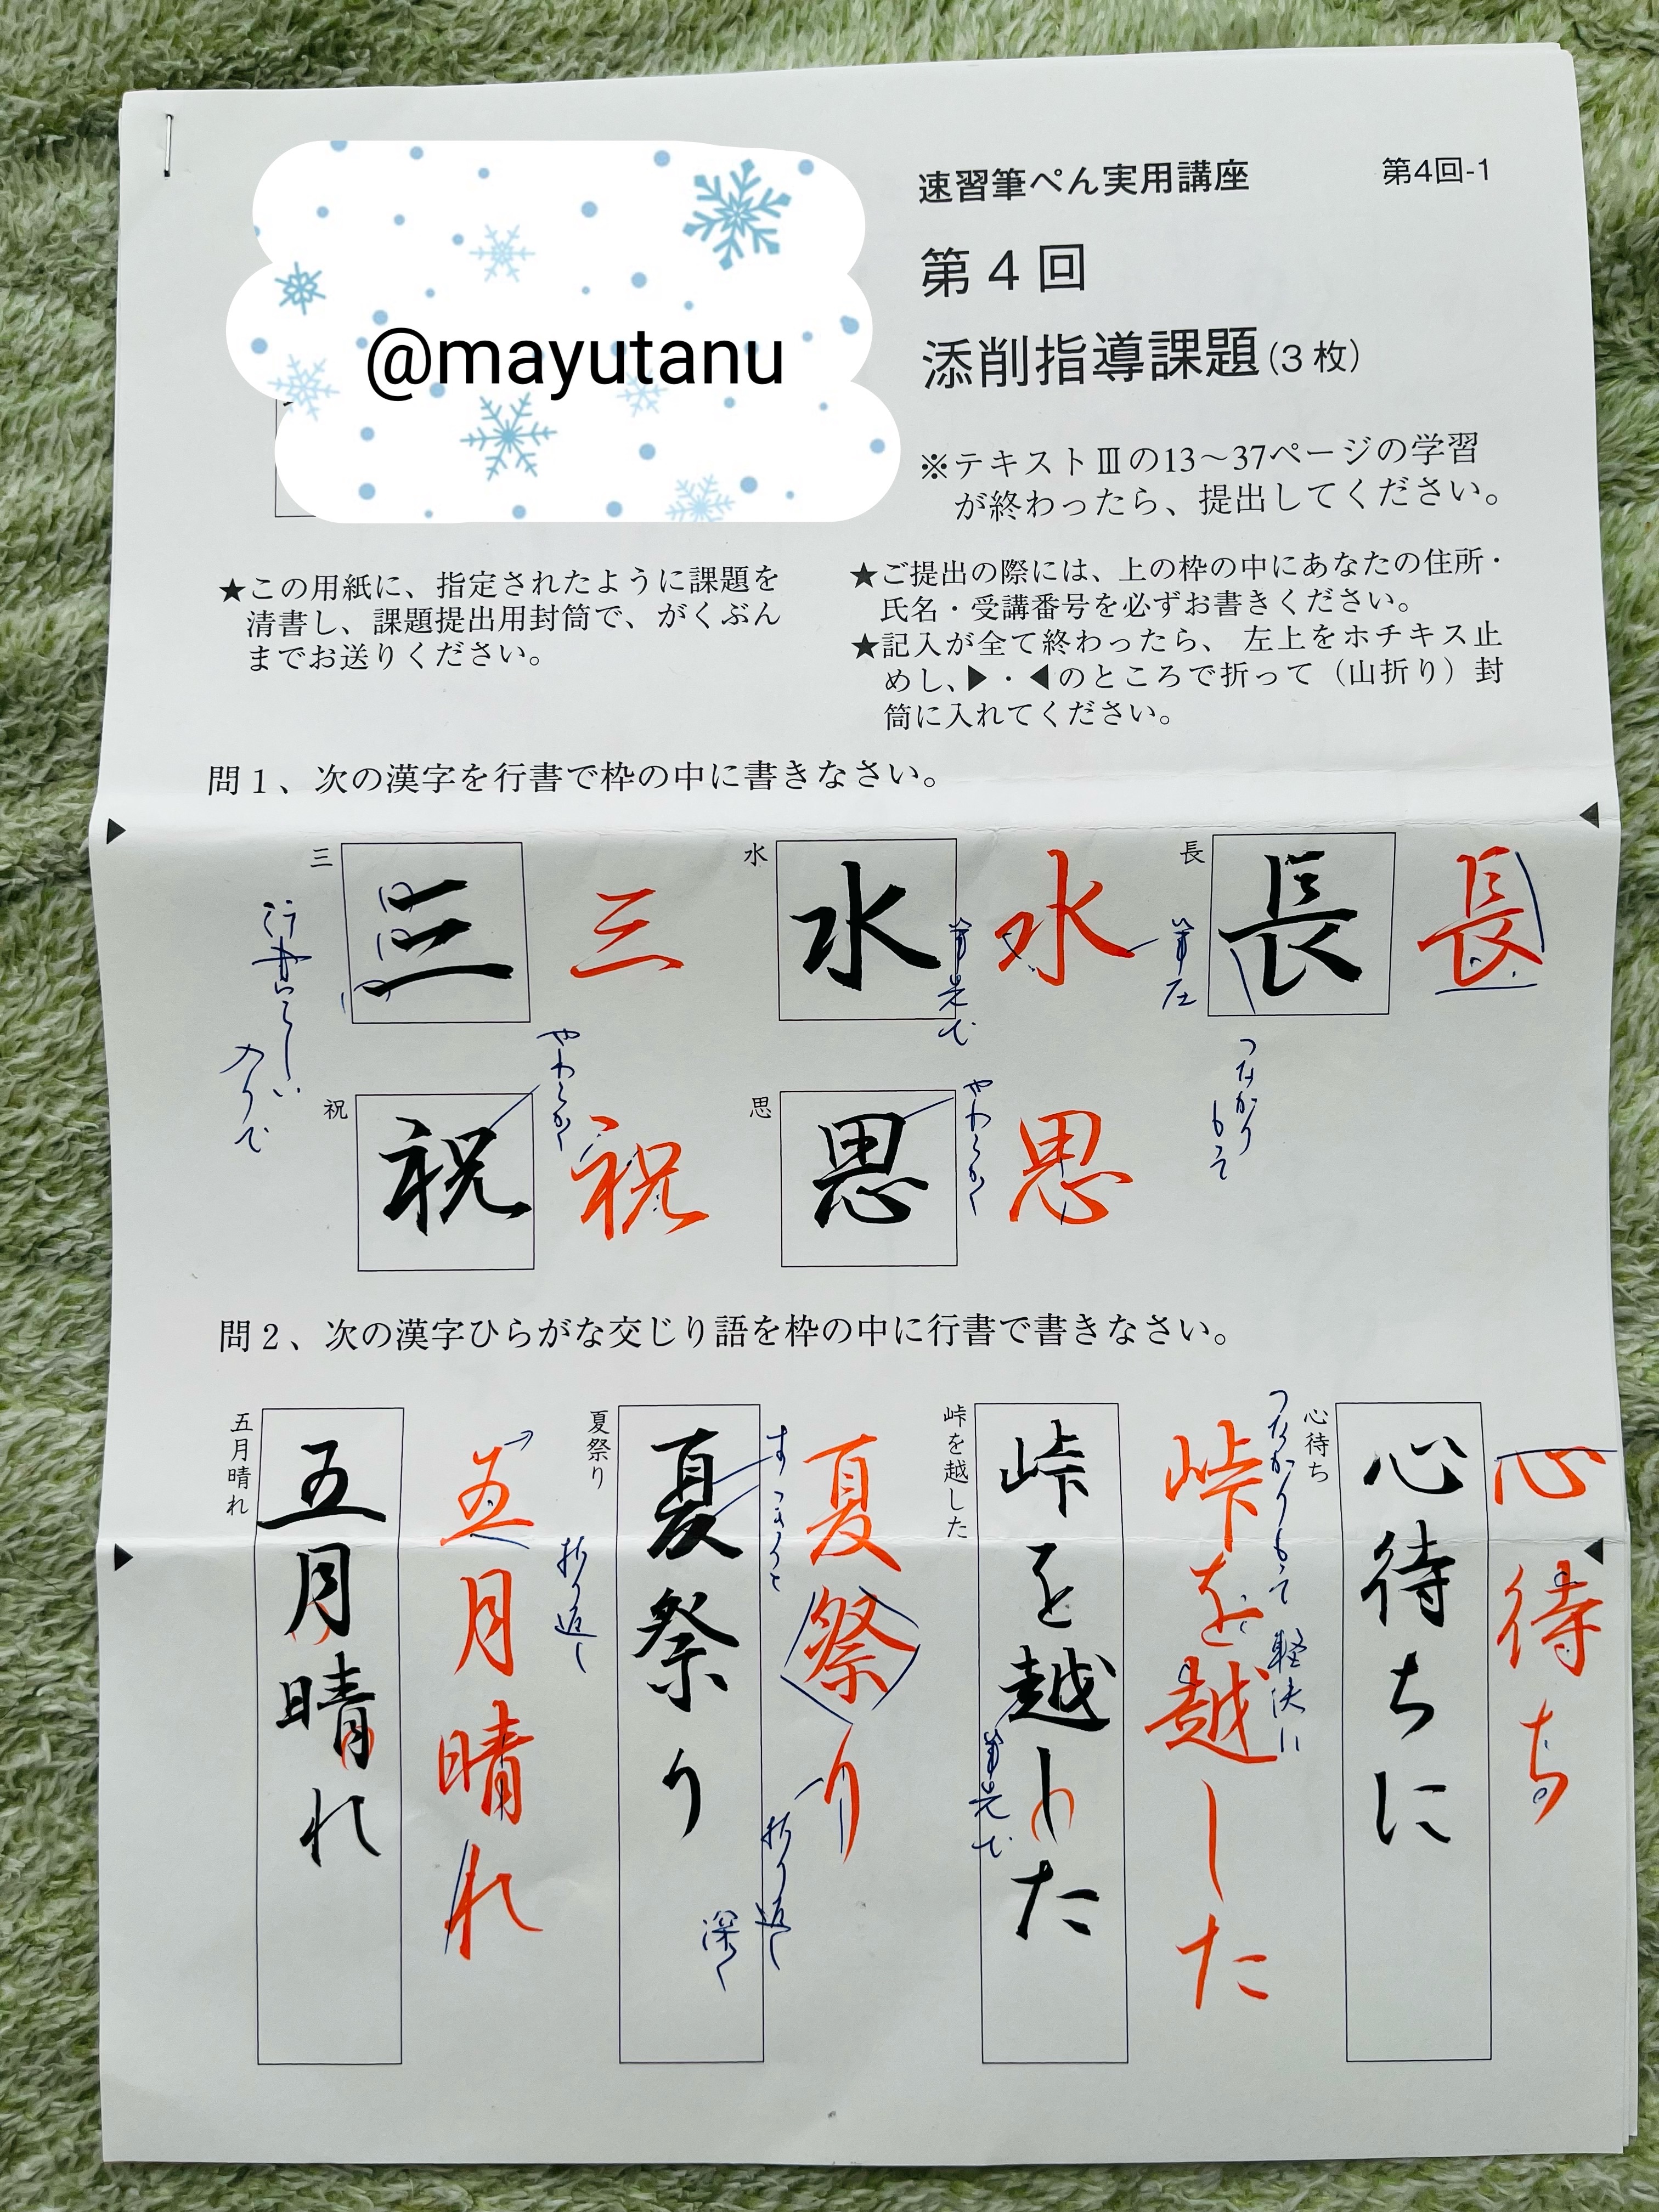 @mayutanu
速習筆ぺん実用講座
第4回-1
第4回
添削指導課題(3枚)
※テキストⅢの13～37ページの学習
が終わったら、提出してください。
★この用紙に、指定されたように課題を
清書し、課題提出用封筒で、がくぶん
までお送りください。
★ご提出の際には、上の枠の中にあなたの住所・
氏名・受講番号を必ずお書きください。
★記入が全て終わったら、 左上をホチキス止
めし、▶・◀のところで折って（山折り）封
筒に入れてください。
問1、次の漢字を行書で枠の中に書きなさい。
三
三
三
行書らしい
入りで
水
水
筆先で
水
筆圧
長
長
長
つながり
もって
祝
祝
やわらかく
祝
思
思
やわらかく
思
問2、次の漢字ひらがな交じり語を枠の中に行書で書きなさい。
心待ち
心待ちに
心待ち
峠を越した
峠を越した
筆先で
峠を越した
つながりもって
軽快に
夏祭り
夏祭り
夏祭り
折り返し
深く
五月晴れ
五月晴れ
五月晴れ
折り返し